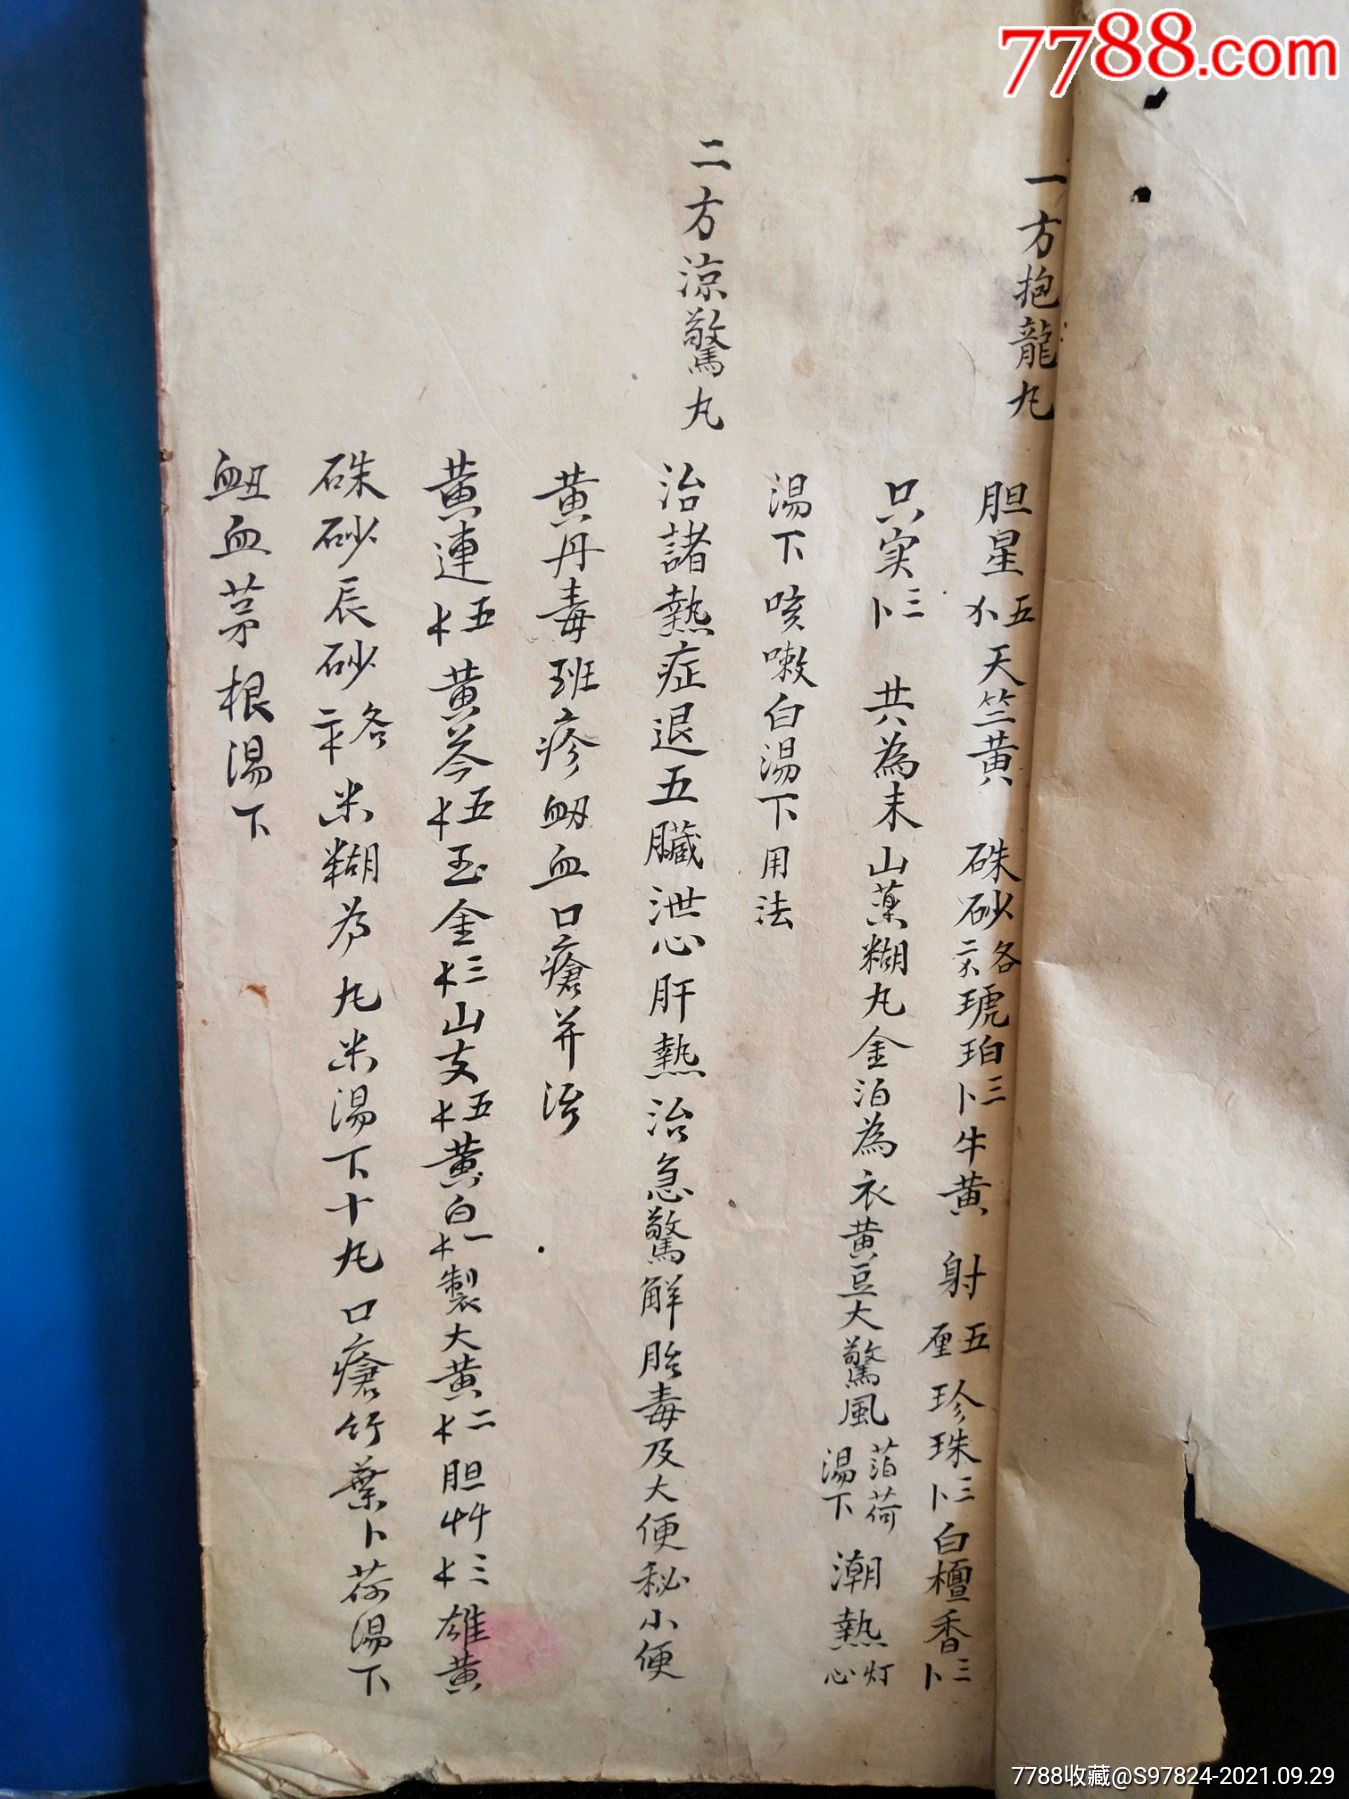 7788.com
一方抱龍丸
胆星五 天竺黃 硃砂各 琥珀三卜牛黃 射五厘 珍珠三卜白檀香三卜
只实三卜 共為末山薬糊丸金泊為衣黄豆大驚風萡荷湯下 潮熱灯心
湯下咳嗽白湯下用法
二方涼驚丸
治諸熱症退五臟泄心肝熱治急驚解胎毒及大便秘小便
黃丹毒班疹衂血口瘡并治
黃連五 黃芩五 玉金三 山支五 黃白一 製大黃二 胆艸三 雄黃
硃砂辰砂各 米糊为丸米湯下十丸口瘡竹葉卜荷湯下
衄血茅根湯下
7788收藏@S97824-2021.09.29